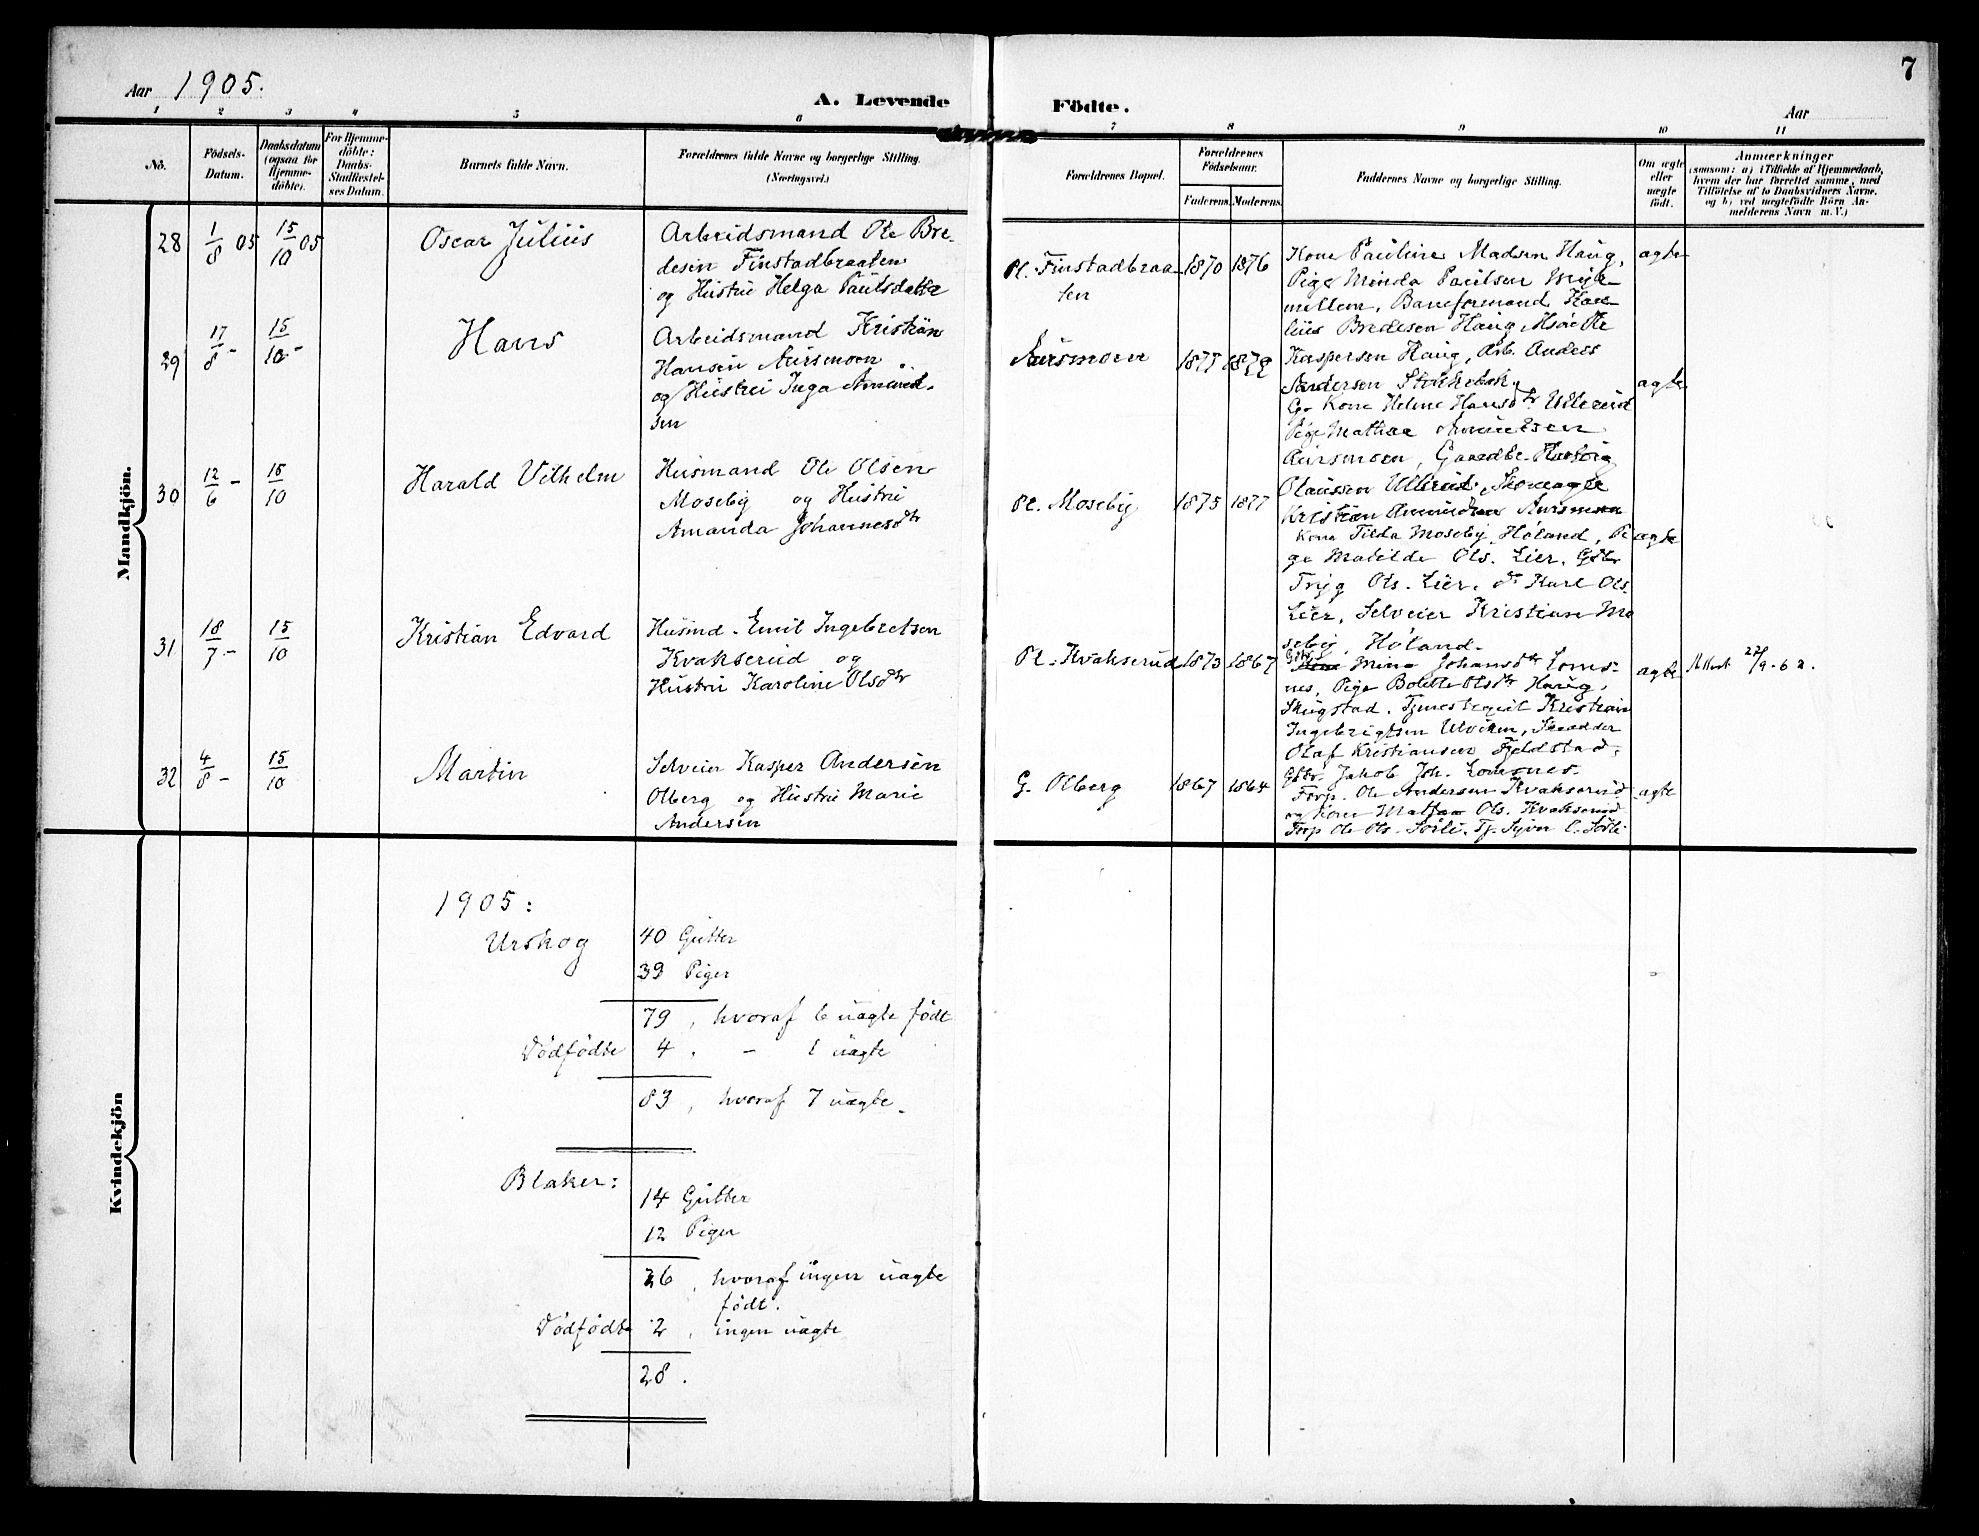 7
Aar 1905.
A. Levende Födte.
Aar
1 2 3 4 5 6 7 8 9 10 11
No.
Födsels-
Datum.
Daabsdatum
(ogsaa for
Hjemme-
döbte).
For Hjemme-
döbte:
Daabs-
Stadfæstel-
ses Datum.
Barnets fulde Navn.
Forældrenes fulde Navne og borgerlige Stilling.
(Næringsvei.)
Forældrenes Bopæl.
Forældrenes
Födselsaar.
Faderens. Moderens.
Faddernes Navne og borgerlige Stilling.
Om ægte
eller
uægte
födt.
Anmærkninger
(saasom: a) i Tilfælde af Hjemmedaab,
hvem der har forrettet samme, med
Tilföielse af to Daabsvidners Navne,
og b) ved uægtefödte Börn An-
melderens Navn m. V.)
Mandkjön.
28 1/8 05 15/10 05
Oscar Julius
Arbeidsmand Ole Bre-
desen Finstadbraaten
og Hustru Helga Paulsdatter
Pl. Finstadbraa-
ten
1870 1876
Kone Pauline Madsen Haug,
Pige Minda Paulsen
mellem, Baneformand
Bredesen Haug, Ole
Kaspersen Haug, Arb. Anders
Andersen
ægte
29 17/8 - 15/10 -
Hans
Arbeidsmand Kristian
Hansen Aursmoen
og Hustru Inga Amund-
sen
Aursmoen
1877
G. Kone Helene Hansdtr Ullerud
Pige Mathea Amundsen
Aursmoen, Gaardbr.
Olaussen Ullerud,
Kristian Amundsen Aursmoen
ægte
30 12/6 - 15/10
Harald Vilhelm
Husmand Ole Olsen
Moseby og Hustru
Amanda Johannesdtr
Pl. Moseby
1875 1877
Kone Tilda Moseby, Höland, Pi
ge Matilde Ols. Lier, Gbr
Tryg Ols. Lier, do Karl Ols.
Lier, Selveier Kristian Mo
seby, Höland.
ægte
31 18/7 - 15/10
Kristian Edvard
Husmd. Emil Ingebretsen
Kvakserud og
Hustru Karoline Olsdtr
Pl. Kvakserud
1873 1867
Mina Johansdtr Loms-
nes, Pige Bolette Olsdtr Haug,
Skugstad, Kristian
Ingebrigtsen Ulviken, Skrædder
Olaf Kristiansen Fjeldstad,
Gbr. Jakob Joh. Lomsnes.
ægte
Attest 27/9-62.
32 4/8 - 15/10
Martin
Selveier Kasper Andersen
Olberg og Hustru Marie
Andersen
G. Olberg
1867 1864
Forp. Ole Andersen Kvakserud
og Kone Mathea Ols. Kvakserud
Forp Ole Ols. Sørli, Tj. Syver O. Sørli
ægte
Kvindekjön
1905:
Urskog 40 Gutter
39 Piger
79, hvoraf 6 uægte født
Dødfødte 4. - 1 uægte
83, hvoraf 7 uægte.
Blaker: 14 Gutter
12 Piger
26, hvoraf ingen uægte
født.
Dødfødte 2, ingen uægte
28.